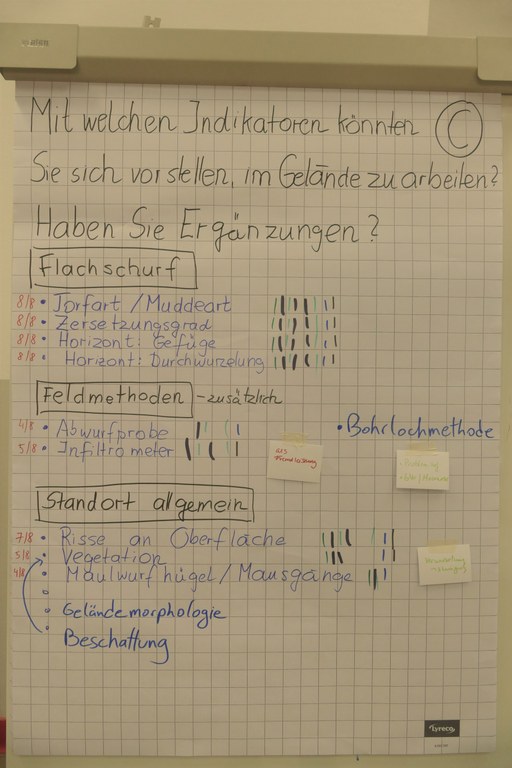 Mit welchen Indikatoren könnten
Sie sich vorstellen, im Gelände zu arbeiten?
Haben Sie Ergänzungen?
C
Flachschurf
8/8 • Torfart / Muddeart
8/8 • Zersetzungsgrad
8/8 • Horizont: Gefüge
8/8 • Horizont: Durchwurzelung
Feldmethoden - zusätzlich
4/8 • Abwurfprobe
5/8 • Infiltrometer
• Bohrlochmethode
Standort allgemein
7/8 • Risse an Oberfläche
5/8 • Vegetation
4/8 • Maulwurfhügel / Mausgänge
Geländemorphologie
Beschattung
Tyreco